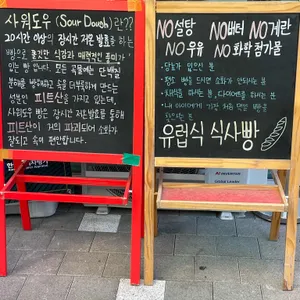 사워도우 (Sour Dough)란??
20시간 이상의 장시간 저온 발효를 하는
빵으로 쫄깃한 식감과 매력적인 풍미가
있는 빵 입니다. 모든 곡물에는 단백질
분해를 방해하고 속을 더부룩하게 만드는
성분인 피트산을 가지고 있는데,
사워도우 빵은 장시간 저온발효를 통해
피트산이 거의 파괴되어 소화가
잘되고 속이 편안합니다.
NO설탕 NO버터 NO계란
NO우유 NO화학첨가물
· 당뇨가 있었던 분
· 평소 빵을 드시면 소화가 안되시는 분
· 다이어트를 하시는 분
유럽식 식사빵